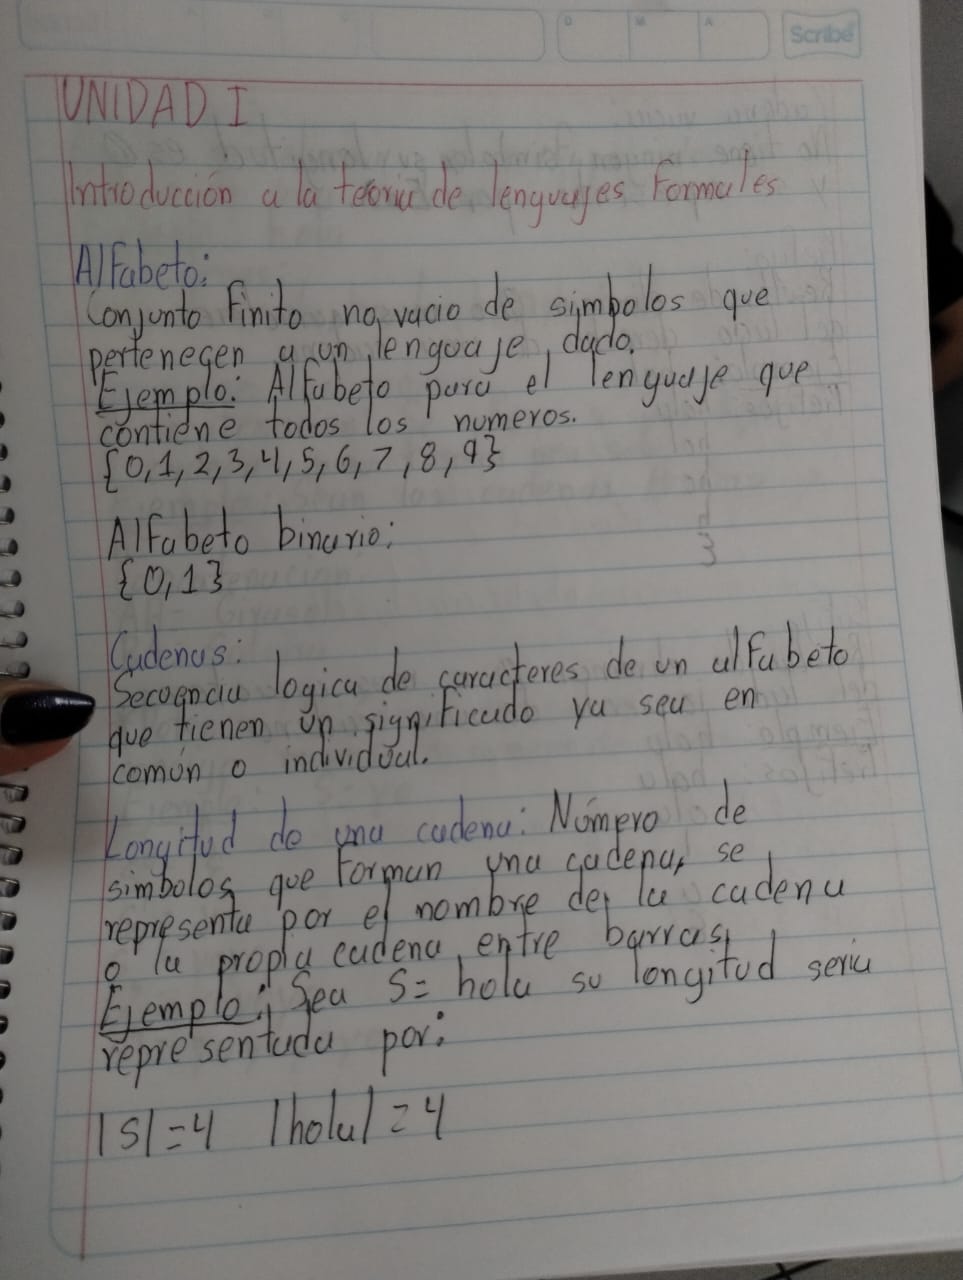 D M A Scribe
UNIDAD I
Introducción a la teoria de lenguajes Formales
Alfabeto:
Conjunto Finito no vacio de simbolos que
pertenecen a un lenguaje dado.
Ejemplo: Alfabeto para el lenguaje que
contiene todos los numeros.
{0,1,2,3,4,5,6,7,8,9}
Alfabeto binario:
{0,1}
Cadenas:
Secuencia logica de caracteres de un alfabeto
que tienen un significado ya sea en
común o individual.
Longitud de una cadena: Número de
simbolos que Forman una cadena, se
representa por el nombre de la cadena
o la propia cadena entre barras,
Ejemplo: Sea S= hola su longitud seria
representada por:
|S|=4 |hola|=4